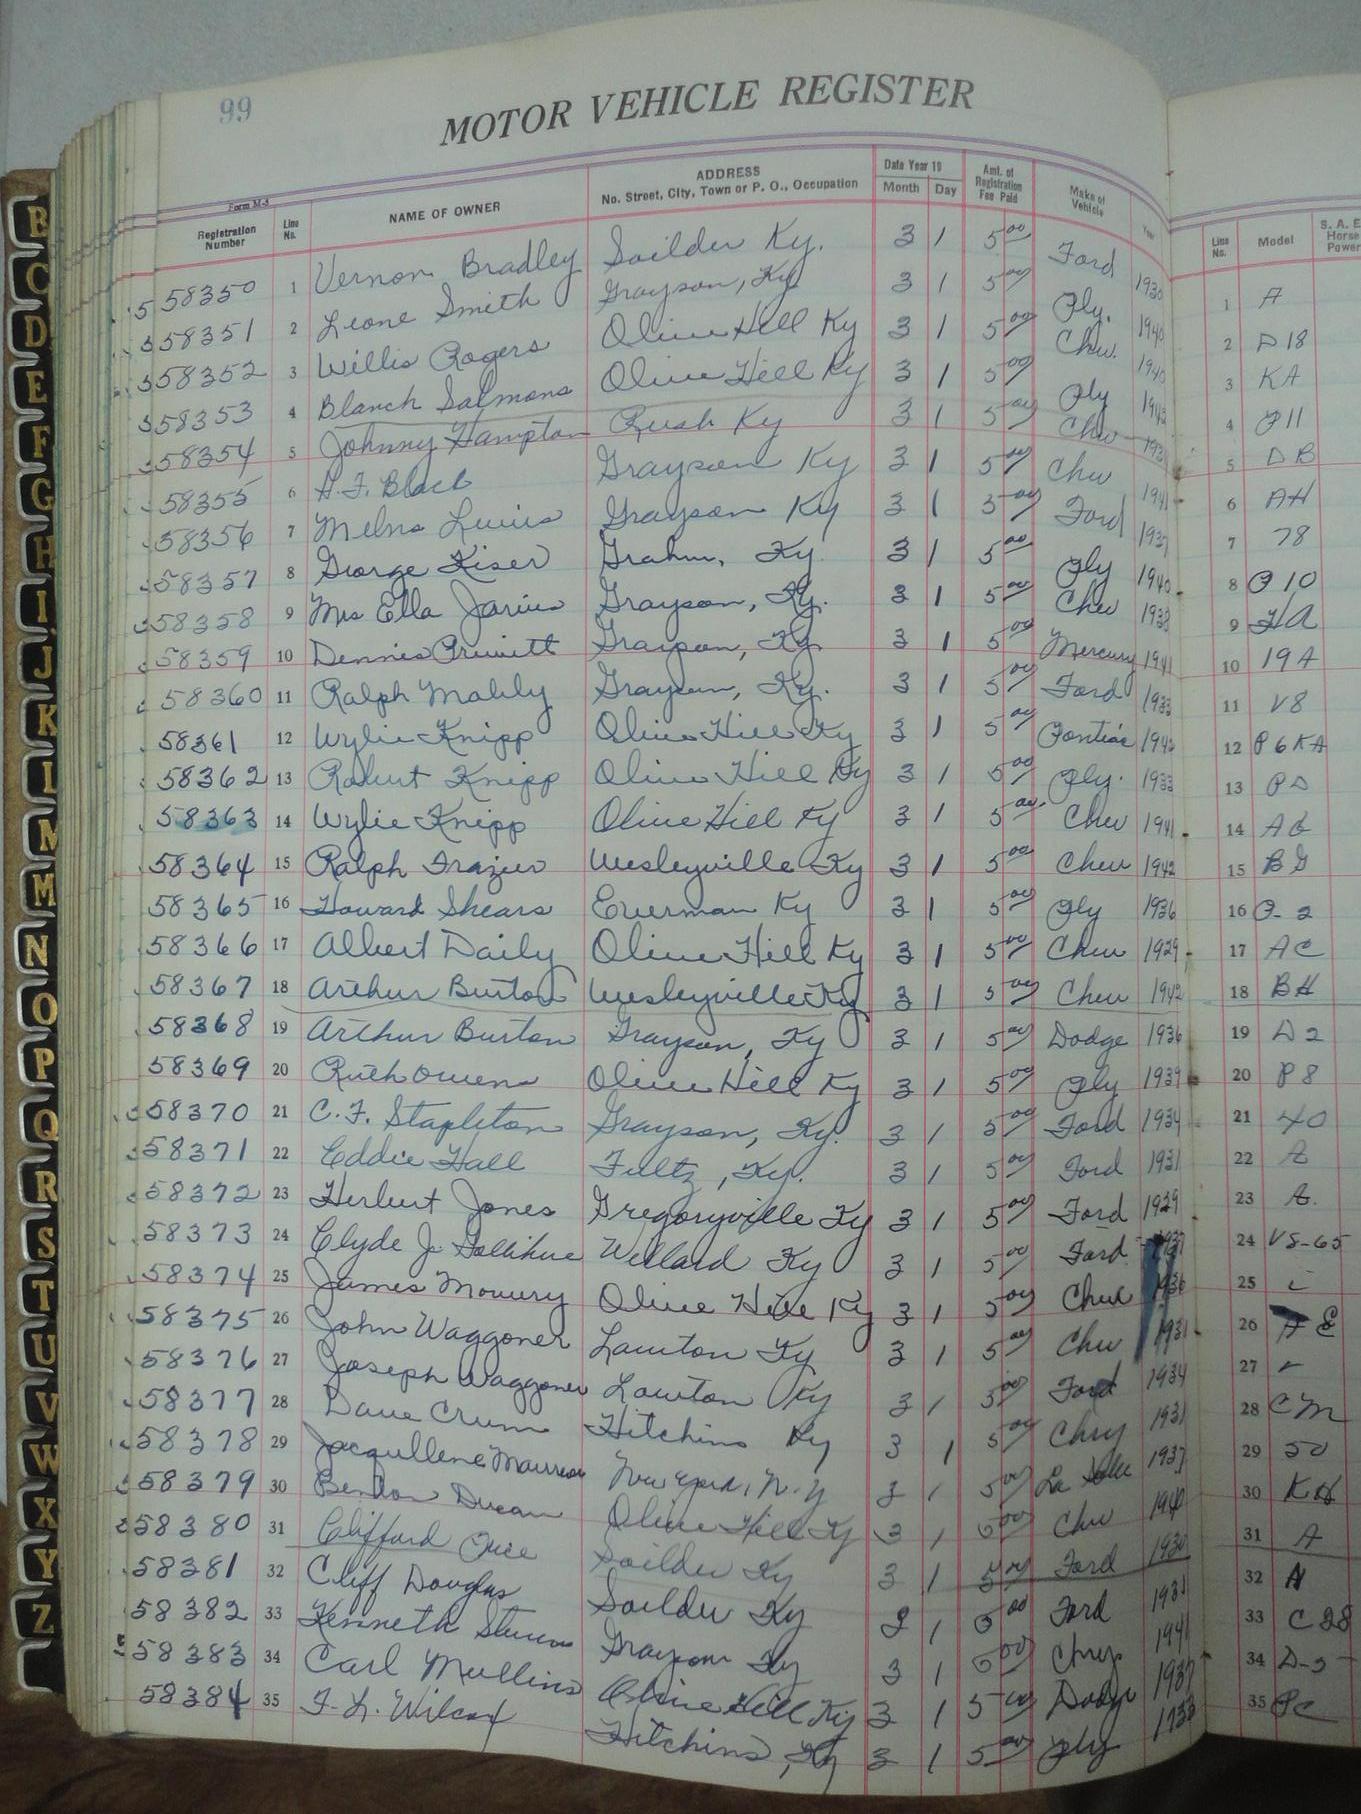 99
MOTOR VEHICLE REGISTER
Form M-5
Registration Number Line No. NAME OF OWNER ADDRESS No. Street, City, Town or P. O., Occupation Date Year 19 Month Day Amt. of Registration Fee Paid Make of Vehicle Year Line No. Model S. A. E. Horse Power
58350 1 Vernon Bradley Soilder Ky. 3 1 5 00 Ford 1930 1 A
58351 2 Leone Smith Grayson, Ky 3 1 5 00 Ply. 1940 2 D18
58352 3 Willis Rogers Olive Hill Ky 3 1 5 00 Chev. 1940 3 KA
58353 4 Blanch Salmons Olive Hill Ky 3 1 5 00 Ply 4 P11
58354 5 Johnny Hampton Rush Ky 3 1 5 00 Chev 5 DB
58355 6 H. F. Black Grayson Ky 3 1 5 00 Chev 1941 6 AH
58356 7 Grayson Ky 3 1 5 00 Ford 1937 7 78
58357 8 George Kiser Grahn, Ky. 3 1 5 00 Ply 1940 8 P10
58358 9 Mrs Ella Grayson, Ky. 3 1 5 00 Chev 1938 9 HA
58359 10 Dennis Pruvitt Grayson, Ky. 3 1 5 00 Mercury 1941 10 19A
58360 11 Ralph Grayson, Ky. 3 1 5 00 Ford 1933 11 V8
58361 12 Wylie Knipp Olive Hill Ky 3 1 5 00 Pontiac 12 P6KA
58362 13 Robert Knipp Olive Hill Ky 3 1 5 00 Ply. 1933 13 PD
58363 14 Wylie Knipp Olive Hill Ky 3 1 5 00 Chev 1941 14 AG
58364 15 Ralph Frazier Wesleyville Ky 3 1 5 00 Chev 1942 15 BG
58365 16 Howard Shears Everman Ky 3 1 5 00 Ply 1936 16 P-2
58366 17 Albert Daily Olive Hill Ky 3 1 5 00 Chev 1929 17 AC
58367 18 Arthur Burton Wesleyville Ky 3 1 5 00 Chev 1942 18 BH
58368 19 Arthur Burton Grayson, Ky 3 1 5 00 Dodge 1936 19 D2
58369 20 Ruth Owens Olive Hill Ky 3 1 5 00 Ply 1939 20 P8
58370 21 C. F. Stapleton Grayson, Ky. 3 1 5 00 Ford 1934 21 40
58371 22 Eddie Hall Fultz, Ky. 3 1 5 00 Ford 1931 22 A
58372 23 Herbert Jones Gregoryville Ky 3 1 5 00 Ford 1929 23 A.
58373 24 Clyde J. Willard Ky 3 1 5 00 Ford 1937 24 V8-65
58374 25 James Olive Hill Ky 3 1 5 00 Chev 1936 25
58375 26 John Waggoner Lawton Ky 3 1 5 00 Chev 1931 26 AE
58376 27 Joseph Waggoner Lawton Ky 3 1 5 00 Ford 1934 27
58377 28 Dave Crum Hitchins Ky 3 1 5 00 Chry 1931 28 CM
58378 29 Jacqullene New York, N.Y 3 1 5 00 La Salle 1937 29 50
58379 30 Benton Olive Hill Ky 3 1 5 00 Chev 1940 30 KH
58380 31 Clifford Soilder Ky 3 1 5 00 Ford 1930 31 A
58381 32 Cliff Douglas Soilder Ky 3 1 5 00 Ford 1931 32 A
58382 33 Kenneth Grayson Ky 3 1 5 00 Chry. 1941 33 C28
58383 34 Carl Mullins Olive Hill Ky 3 1 5 00 Dodge 1937 34 D-5
58384 35 F. L. Wilcox Hitchins, Ky 3 1 5 00 Ply 1933 35 PC
B
C
D
E
F
G
H
I
J
K
L
M
M
N
O
P
Q
R
S
T
U
V
W
X
Y
Z